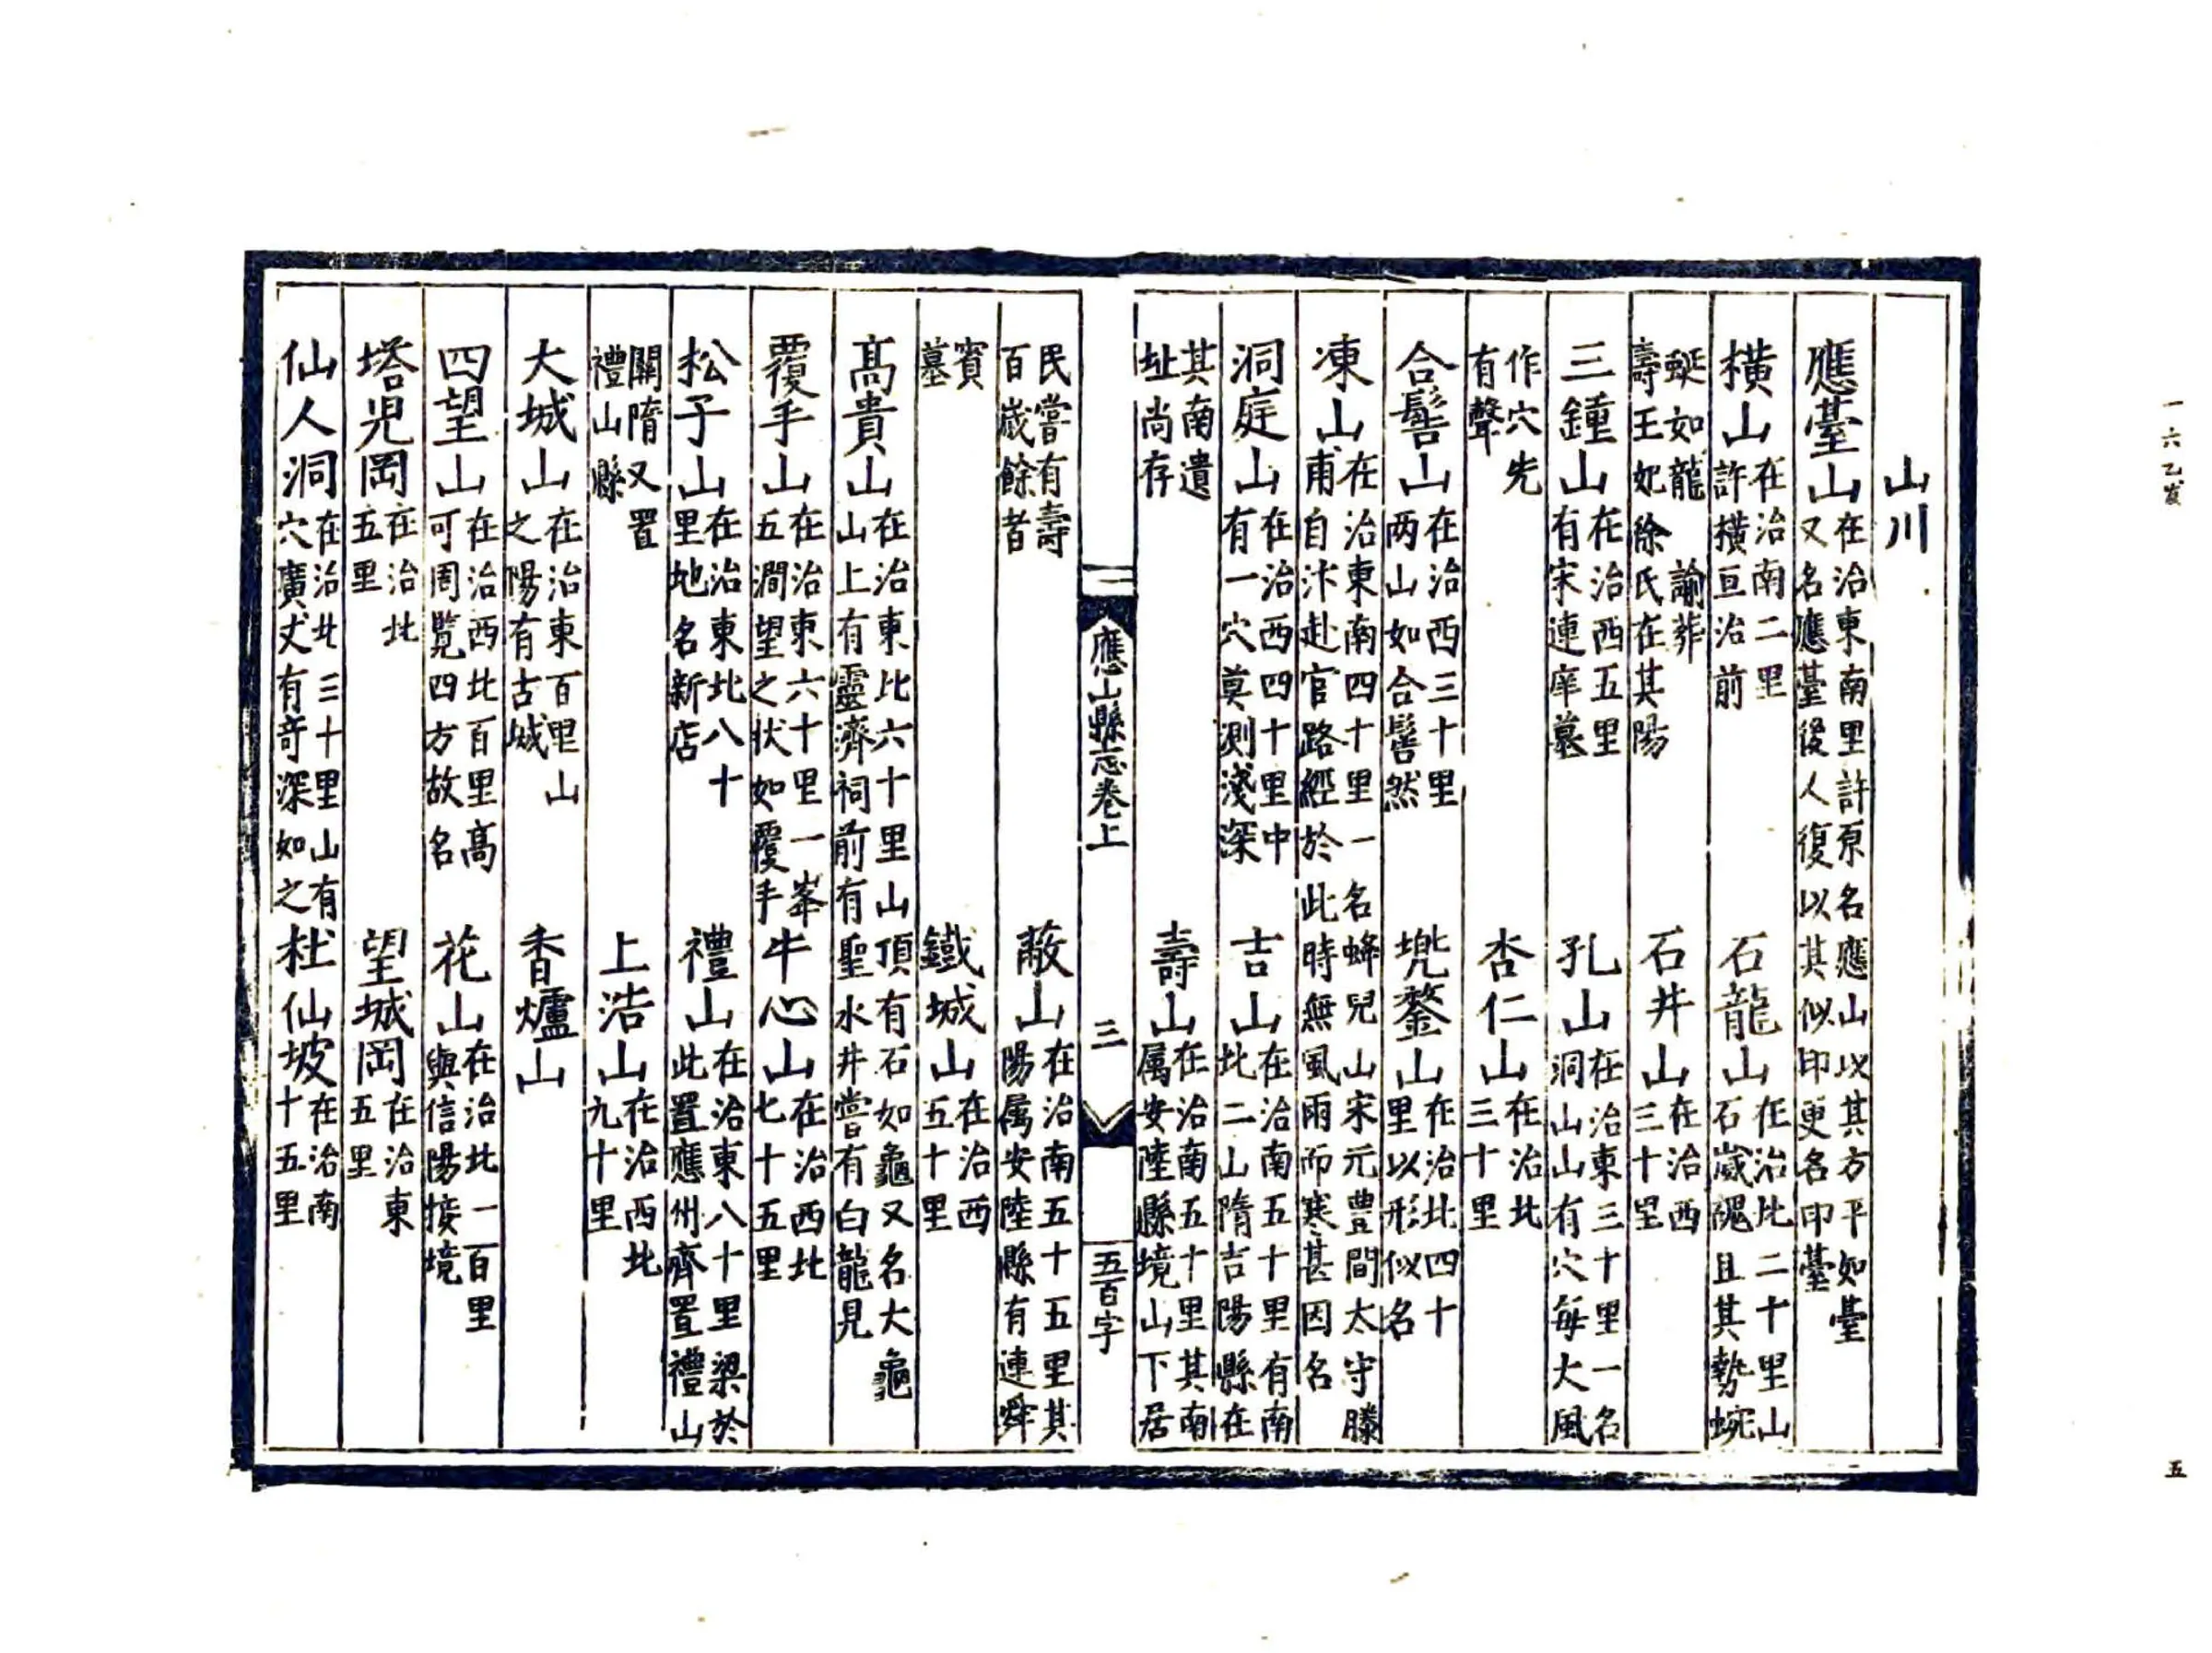 山川
應臺山在治東南里許原名應山以其方平如臺又名應臺後人復以其似印更名印臺
橫山在治南二里許橫亘治前 石龍山在治北二十里山石崴磈且其勢蜿
蜒如龍 諭葬壽王妃徐氏在其陽 石井山在治西三十里
三鍾山在治西五里有宋連庠墓 孔山在治東三十里一名洞山山有穴每大風
作穴先有聲 杏仁山在治北三十里
合髻山在治西三十里两山如合髻然 兠鍪山在治北四十里以形似名
凍山在治東南四十里一名蜂兒山宋元豊間太守滕甫自汴赴官路經於此時無風雨而寒甚因名
洞庭山在治西四十里中有一穴莫測淺深 吉山在治南五十里有南北二山隋吉陽縣在
其南遺址尚存 壽山在治南五十里其南属安陸縣境山下居
應山縣志卷上 三 五百字
民嘗有壽百歲餘者 䕌山在治南五十五里其陽属安陸縣有連舜
賓墓 鐵城山在治西五十里
髙貴山在治東北六十里山頂有石如龜又名大龜山山上有靈濟祠前有聖水井嘗有白龍見
覆手山在治東六十里一峯五澗望之状如覆手 牛心山在治西北七十五里
松子山在治東北八十里地名新店 禮山在治東八十里梁於此置應州齊置禮山
關隋又置禮山縣 上浩山在治西北九十里
大城山在治東百里山之陽有古城 香爐山
四望山在治西北百里髙可周覽四方故名 花山在治北一百里與信陽接境
塔児岡在治北五里 望城岡在治東五里
仙人洞在治北三十里山有穴廣丈有竒深如之 杜仙坡在治南十五里
五